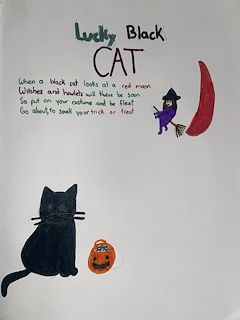 Lucky Black
CAT
When a black cat looks at a red moon
Witches and howlets will there be soon
So put on your costume and be fleet
Go about, to seek your trick or treat